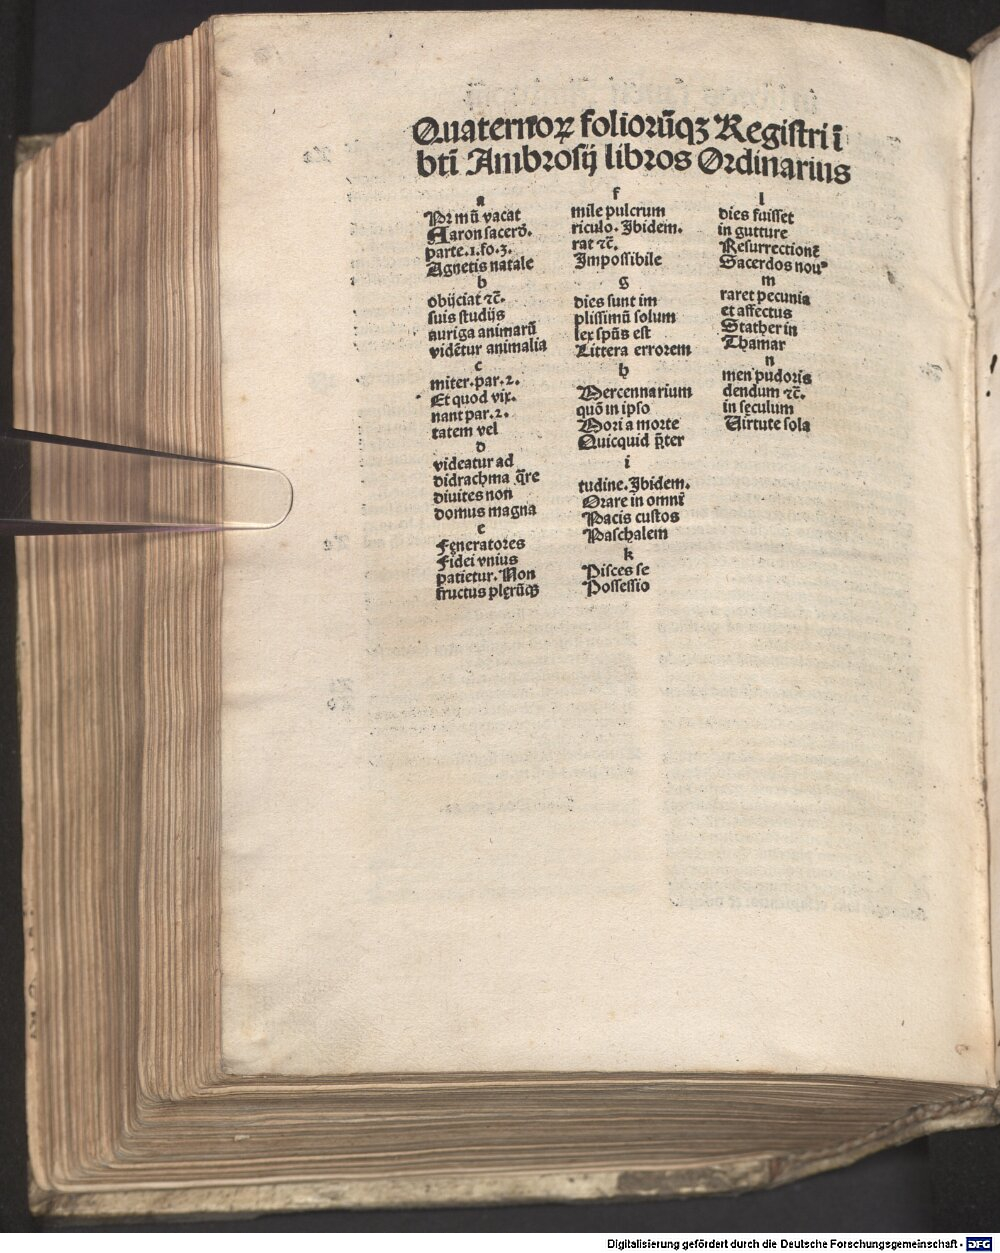 Quaternoꝝ folioru̅qꝫ Regiſtri i̅
bti̅ Ambroſij libros Ordinarius
a
Pꝛ mu̅ vacat
Aaron ſacero̅.
parte.1.fo.3.
Agnetis natale
b
obijciat ⁊c̅.
ſuis ſtudijs
auriga animaru̅
vide̅tur animalia
c
miter.par.2.
Et quod vix.
nant par.2.
tatem vel
d
videatur ad
didrachma q̅re
diuites non
domus magna
e
Fęneratores
Fidei vnius
patietur. Non
fructus plęru̅qꝫ
f
mile pulcrum
riculo. Ibidem.
rat ⁊c̅.
Impoſſibile
g
dies ſunt im
pliſſimu̅ ſolum
lex ſpu̅s eſt
Littera errorem
h
Mercennarium
quo̅ in ipſo
Mori a morte
Quicquid p̅ter
i
tudine. Ibidem.
Orare in omni̅
Pacis cuſtos
Paſchalem
k
Piſces ſe
Poſſeſſio
l
dies fuiſſet
in gutture
Reſurrectione̅
Sacerdos nouꝰ
m
raret pecunia
et affectus
Stather in
Thamar
n
men pudoris
dendum ⁊c̅.
in ſęculum
Virtute ſola
Digitalisierung gefördert durch die Deutsche Forschungsgemeinschaft - DFG